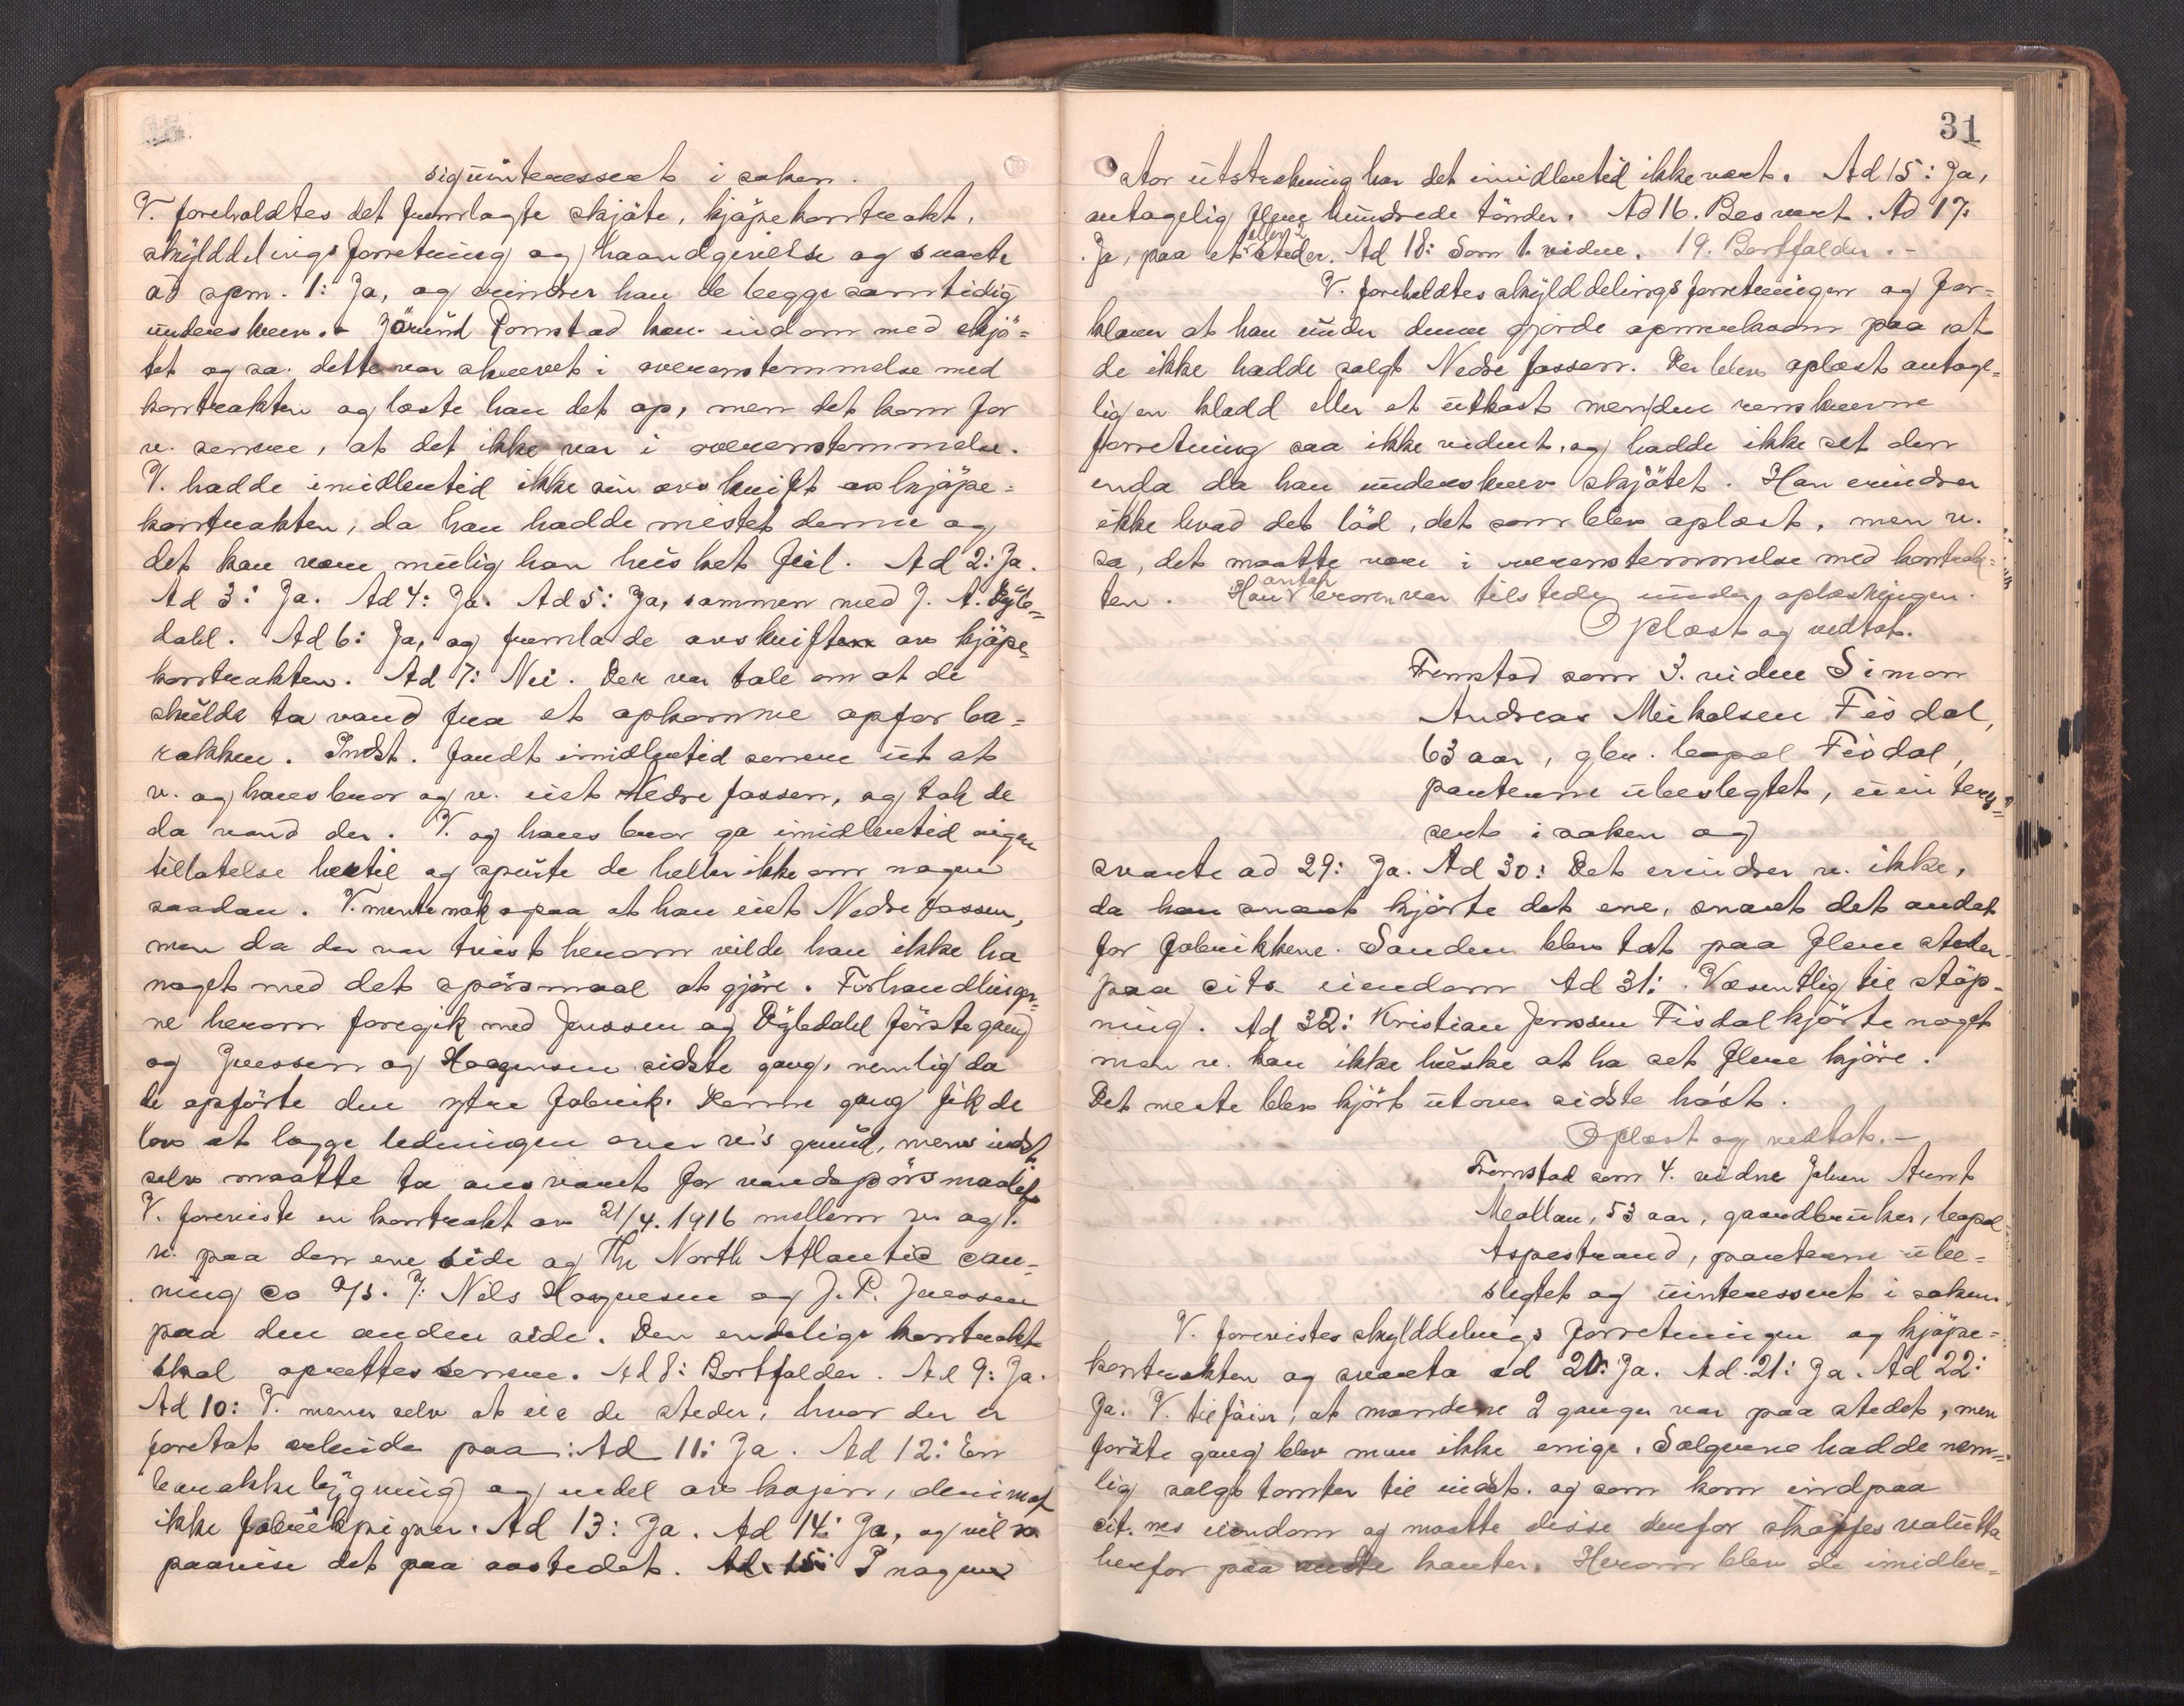 sig uinteressert i saken.
V. foreholdtes det fremlagte skjøte, kjøpekontrakt,
skylddelingsforretning og haandgivelse og svarte
ad spm. 1: Ja, og erindrer han de begge samtidig
underskrev. - Jörund Romstad kom indom med skjö=
tet og sa dette var skrevet i overenstemmelse med
kontrakten og læste han det op, men det kom for
v. senere, at det ikke var i overenstemmelse.
V. hadde imidlertid ikke sin avskrift av kjöpe=
kontrakten, da han hadde mistet denne og
det kan være mulig han husket feil. Ad 2: Ja.
Ad 3: Ja. Ad 4: Ja. Ad 5: Ja, sammen med J. A. Dyble=
dahl. Ad 6: Ja, og fremla de avskriften av kjöpe=
kontrakten. Ad 7: Nei. Der var tale om at de
skulde ta vand fra et opkomme opfor ba=
rakken. Indst. fandt imidlertid senere ut at
v. og hans bror og v. eiet Nedre fossen, og tok de
da vand der. V. og hans bror ga imidlertid ingen
tillatelse hertil og spurte de heller ikke om nogen
saadan. V. mente nok opaa at han eiet Nedre fossen,
men da der var tvist herom vilde han ikke ha
noget med det spörsmaal at gjöre. Forhandlinger=
ne herom foregik med Jenssen og Dybledahl förste gang
og Jenssen og Hagensen sidste gang, nemlig da
de opförte den ytre fabrik. Denne gang fik de
lov at lægge ledningen over v's grund, mens indst.
selv maatte ta ansvaret for vandspörsmaalet.
V. foreviste en kontrakt av 21/4. 1916 mellem v. og 1.
v. paa den ene side og The North Atlantic can=
ning co A/S. v: Nils Hagensen og J. P. Jenssen
paa den anden side. Den endelige kontrakt
skal oprettes senere. Ad 8: Bortfalder. Ad 9: Ja.
Ad 10: V. mener selv at eie de steder, hvor der er
foretat arbeide paa: Ad 11: Ja. Ad 12: En
barakkebygning og endel av kajen, derimot
ikke fabrikpipen. Ad 13: Ja. Ad 14: Ja, og vil v.
paavise det paa aastedet. Ad 15: I nogen
31
stor utstrekning har det imidlertid ikke vært. Ad 15: Ja,
antagelig flere hundrede tönder. Ad 16. Besvart. Ad 17:
Ja, paa et eller 2 steder. Ad 18: Som 1. vidne. 19. Bortfalder. -
V. foreholdtes skylddelingsforretningen og for=
klarer at han under denne gjorde opmerksom paa at
de ikke hadde solgt Nedre fossen. Der blev oplæst antage=
lig en kladd eller et utkast men den renskrevne
forretning saa ikke vidnet, og hadde ikke set den
enda da han underskrev skjötet. Han erindrer
ikke hvad det löd, det som blev oplæst, men v.
sa, det maatte være i overenstemmelse med kontrak=
ten. Hans antar broren var tilstede under oplæsningen.
Oplæst og vedtat.
Fremstod som 3. vidne Simon
Andreas Mikalsen Fisdal,
63 aar, gbr. bopæl Fisdal,
parterne ubeslegtet, uinteres=
sert i saken og
svarte ad 29: Ja. Ad 30: Det erindrer v. ikke,
da han snart kjörte det ene, snart det andet
for fabrikkene. Sanden blev tat paa flere steder
paa cits eiendom Ad 31: Væsentlig til stöp=
ning. Ad 32: Kristian Jenssen Fisdal kjörte noget
men v. kan ikke huske at ha set flere kjöre.
Det meste blev kjört utover sidste höst.
Oplæst og vedtat. -
Fremstod som 4. vidne Johan Arnt
Meollan, 53 aar, gaardbruker, bopæl
Aspestrand, parterne ube=
slegtet og uinteressert i saken.
V. forevistes skylddelings forretningen og kjöpe=
kontrakten og svarte ad 20: Ja. Ad. 21: Ja. Ad 22:
Ja. V. tilföier, at mændene 2 ganger var paa stedet, men
förste gang blev man ikke enige. Sælgerne hadde nem=
lig solgt tomter til indst. og som kom ind paa
cit. nes eiendom og maatte disse derfor skaffes valutta
herfor paa andre kanter. Herom blev de imidler=